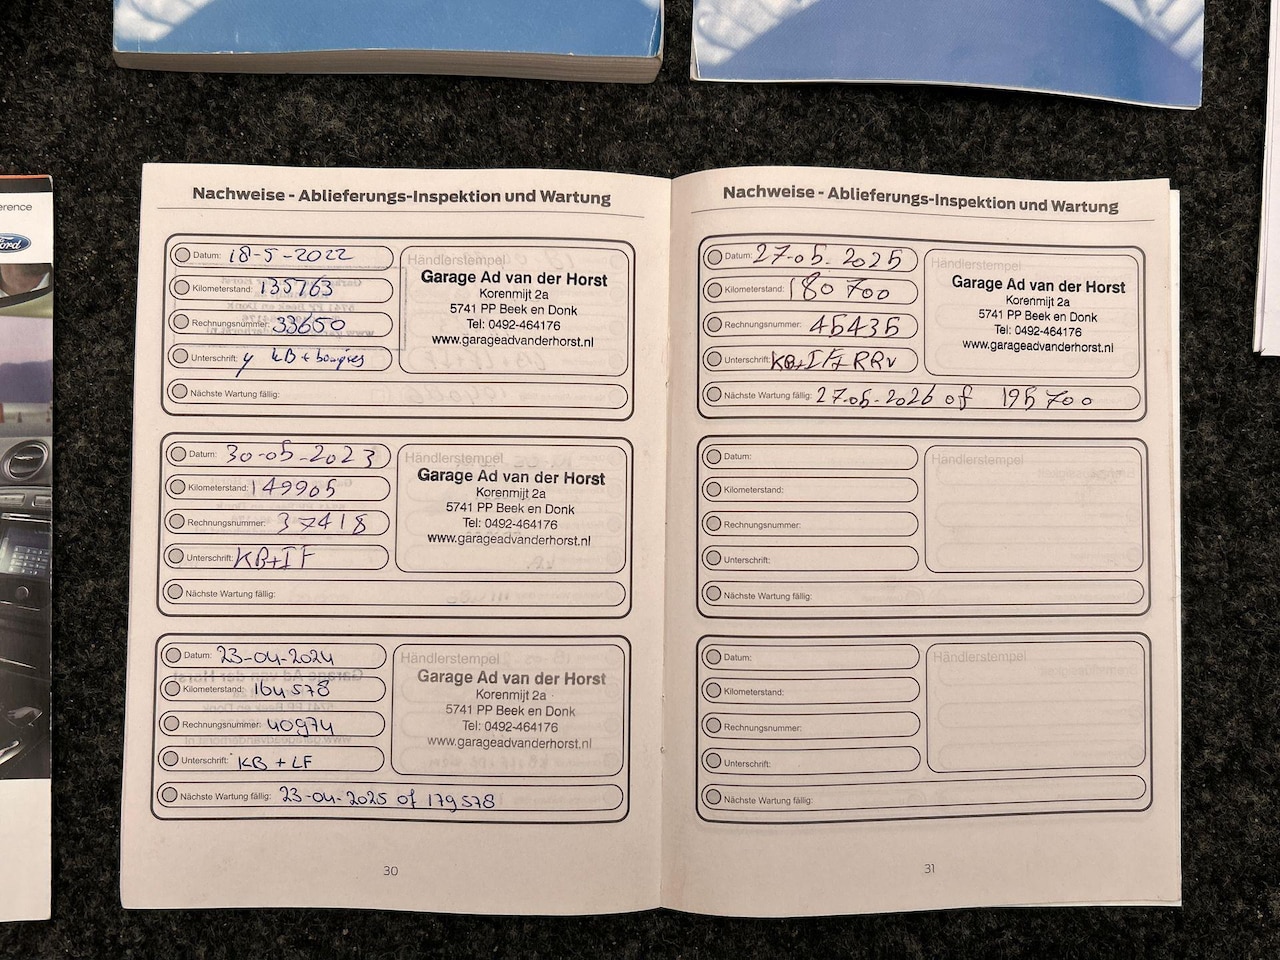 erence
Ford
Nachweise - Ablieferungs-Inspektion und Wartung
Datum: 18-5-2022
Kilometerstand: 135763
Rechnungsnummer: 33650
Unterschrift: KB + bougies
Nächste Wartung fällig:
Händlerstempel
Garage Ad van der Horst
Korenmijt 2a
5741 PP Beek en Donk
Tel: 0492-464176
www.garageadvanderhorst.nl
Datum: 30-05-2023
Kilometerstand: 149905
Rechnungsnummer: 37418
Unterschrift: KB+IF
Nächste Wartung fällig:
Händlerstempel
Garage Ad van der Horst
Korenmijt 2a
5741 PP Beek en Donk
Tel: 0492-464176
www.garageadvanderhorst.nl
Datum: 23-04-2024
Kilometerstand: 164578
Rechnungsnummer: 40974
Unterschrift: KB + LF
Nächste Wartung fällig: 23-04-2025 of 179578
Händlerstempel
Garage Ad van der Horst
Korenmijt 2a
5741 PP Beek en Donk
Tel: 0492-464176
www.garageadvanderhorst.nl
30
Nachweise - Ablieferungs-Inspektion und Wartung
Datum: 27-05-2025
Kilometerstand: 180700
Rechnungsnummer: 45435
Unterschrift: KB+IF+RRV
Nächste Wartung fällig: 27-05-2026 of 195700
Händlerstempel
Garage Ad van der Horst
Korenmijt 2a
5741 PP Beek en Donk
Tel: 0492-464176
www.garageadvanderhorst.nl
Datum:
Kilometerstand:
Rechnungsnummer:
Unterschrift:
Nächste Wartung fällig:
Händlerstempel
Datum:
Kilometerstand:
Rechnungsnummer:
Unterschrift:
Nächste Wartung fällig:
Händlerstempel
31